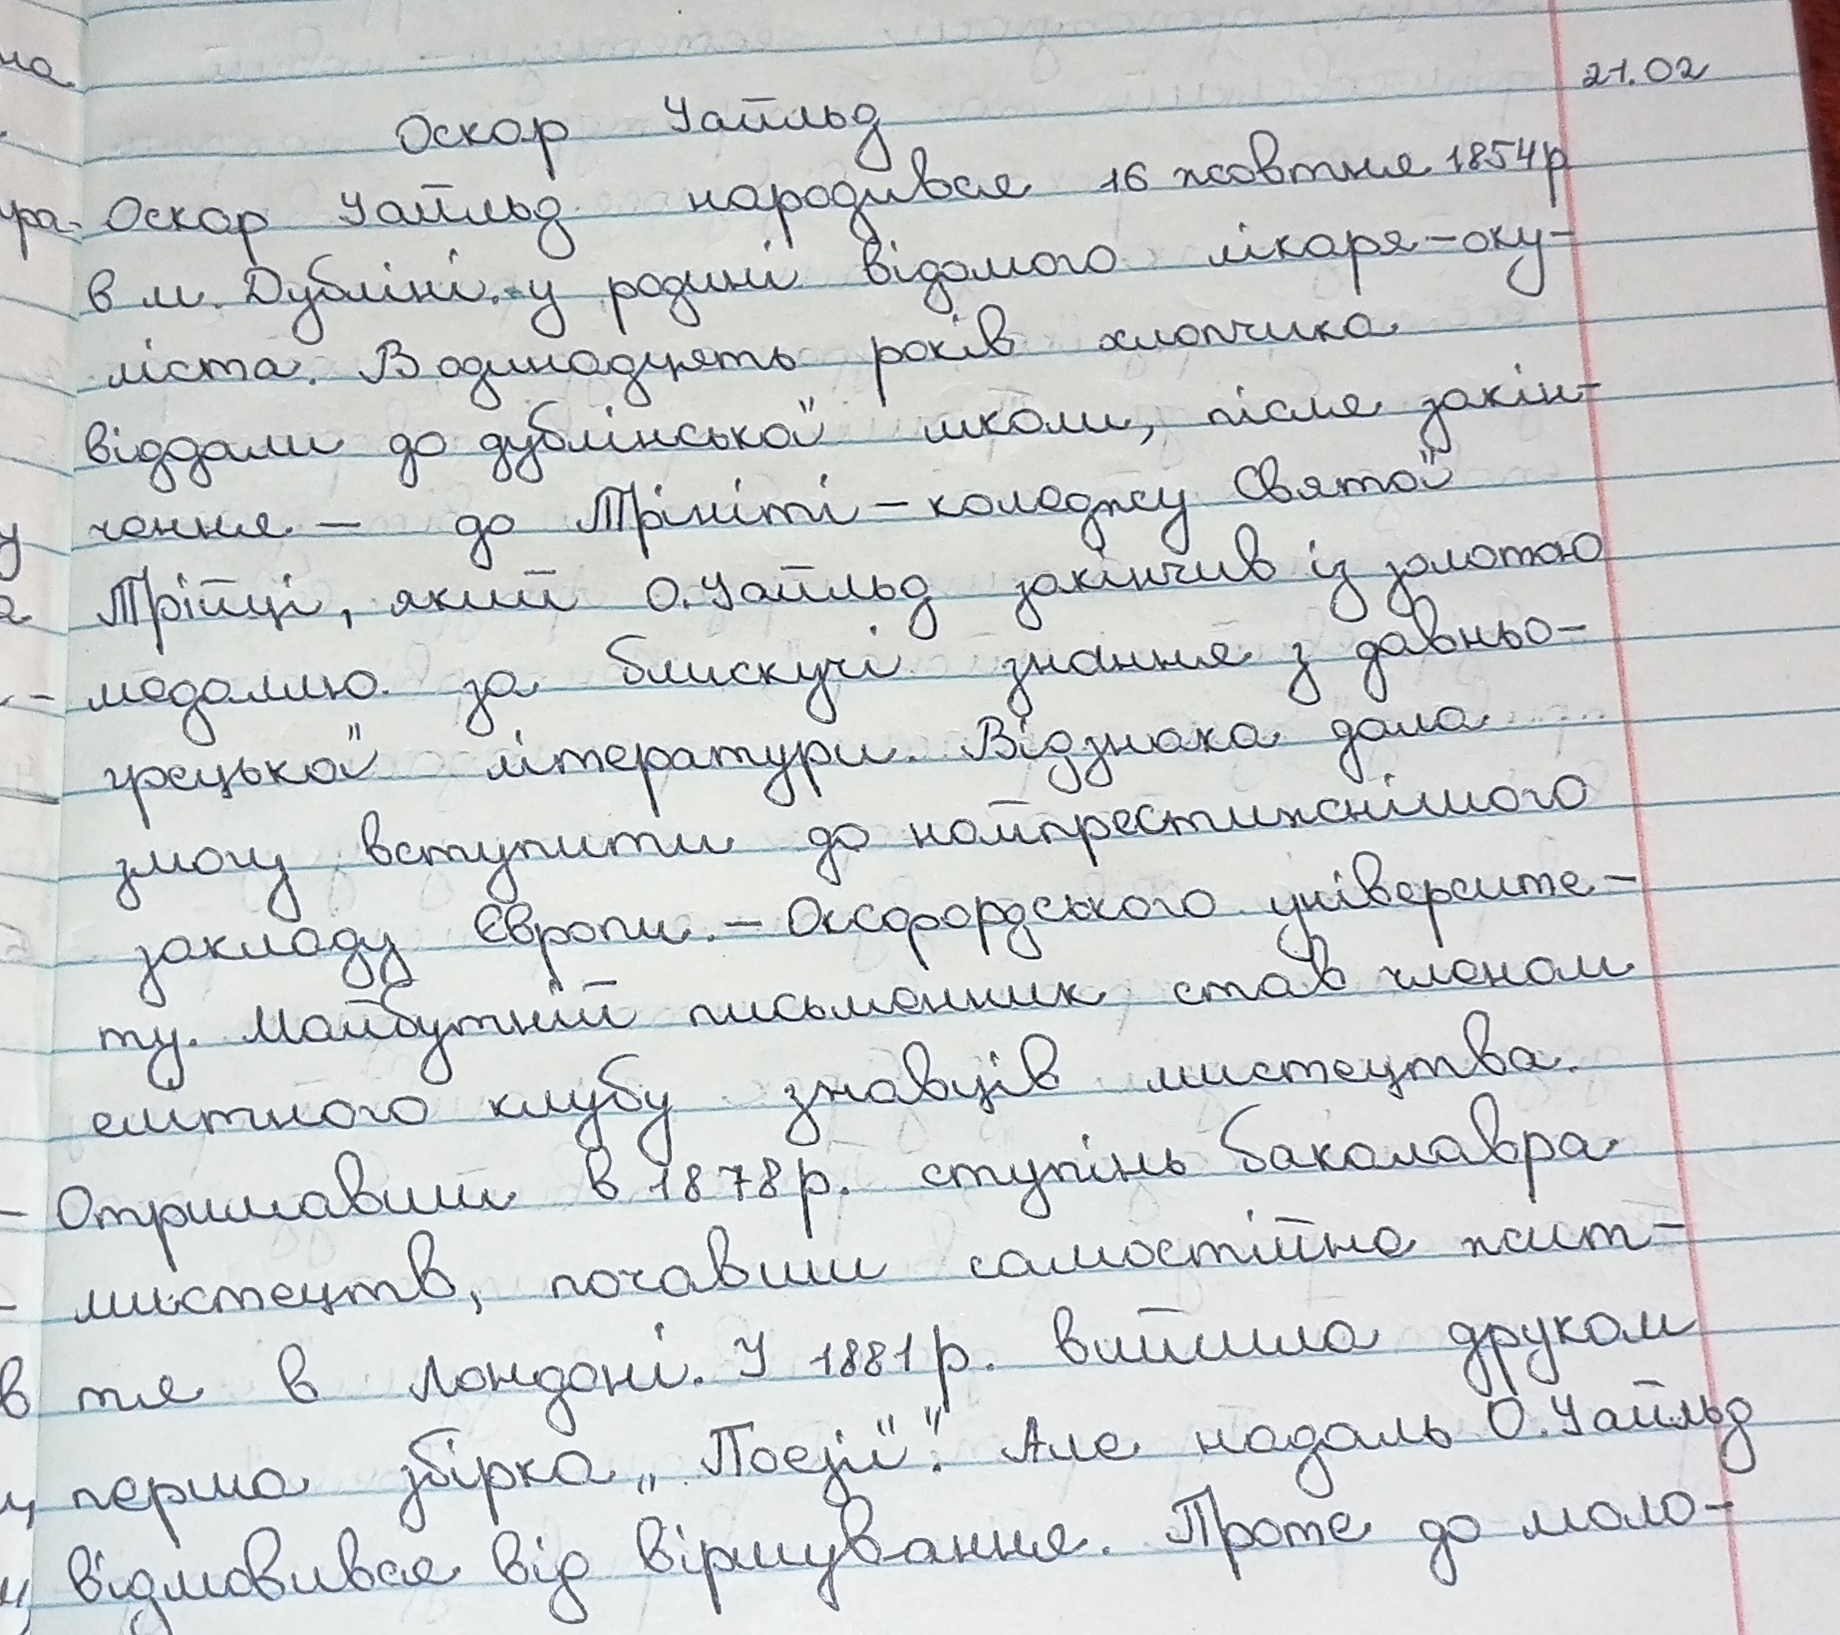 на
21.02
Оскар Уайльд
ра- Оскар Уайльд народився 16 жовтня 1854р
в м. Дубліні. у родині відомого лікаря-оку-
ліста. В одинадцять років хлопчика
віддали до дублінської школи, після закін-
у чення - до Трініті - коледжу Святої
а Трійці, який О.Уайльд закінчив із золотою
- медаллю за блискучі знання з давньо-
грецької літератури. Відзнака дала
змогу вступити до найпрестижнішого
закладу Європи. - Оксфордського університе-
ту. Майбутній письменник став членом
елітного клубу знавців мистецтва.
- Отримавши в 1878р. ступінь бакалавра
- мистецтв, почавши самостійне жит-
в тя в Лондоні. У 1881р. вийшла друком
перша збірка „Поезії". Але надаль О.Уайльд
відмовився від віршування. Проте до моло-